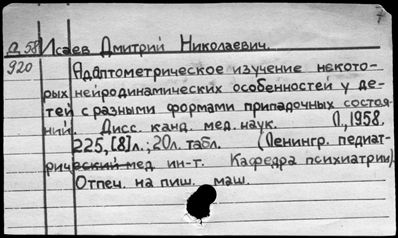 7
Д 58 Исаев Дмитрий Николаевич.
920 Адаптометрическое изучение некото-
рых нейродинамических особенностей у де-
тей с разными формами припадочных состоя-
ний. Дисс. канд. мед. наук. Л., 1958.
225, [8] л.; 20 л. табл. (Ленингр. педиат-
рический мед. ин-т. Кафедра психиатрии).
Отпеч. на пиш. маш.